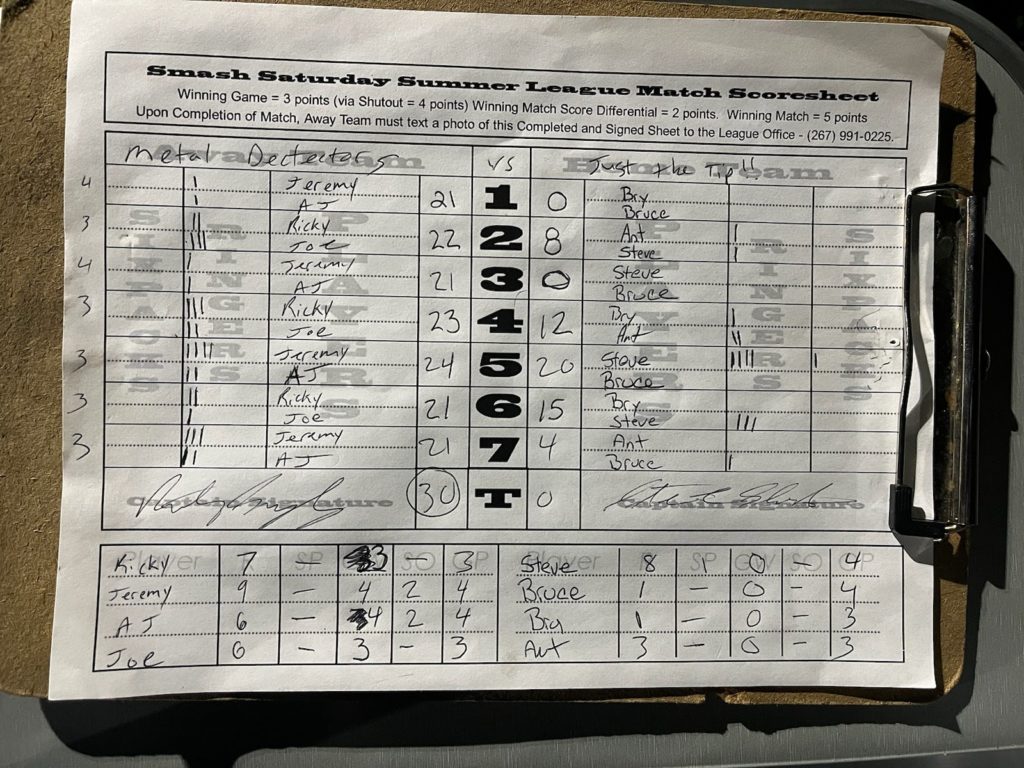 Smash Saturday Summer League Match Scoresheet
Winning Game = 3 points (via Shutout = 4 points) Winning Match Score Differential = 2 points. Winning Match = 5 points
Upon Completion of Match, Away Team must text a photo of this Completed and Signed Sheet to the League Office - (267) 991-0225.
Metal Dectectors vs Just the Tip!!
4 I Jeremy 21 1 0 Bry
I AJ Bruce
3 II Ricky 22 2 8 Ant I
III Joe Steve I
4 I Jeremy 21 3 0 Steve
I AJ Bruce
3 III Ricky 23 4 12 Bry I
II Joe Ant II
3 IIII Jeremy 24 5 20 Steve IIII I
II AJ Bruce
3 II Ricky 21 6 15 Bry
I Joe Steve III
3 III Jeremy 21 7 4 Ant
II AJ Bruce I
Captain Signature 30 T 0 Captain Signature
Player SP GW SO GP Player SP GW SO GP
Ricky 7 - 3 - 3 Steve 8 1 0 - 4
Jeremy 9 - 4 2 4 Bruce 1 - 0 - 4
AJ 6 - 4 2 4 Bry 1 - 0 - 3
Joe 6 - 3 - 3 Ant 3 - 0 - 3